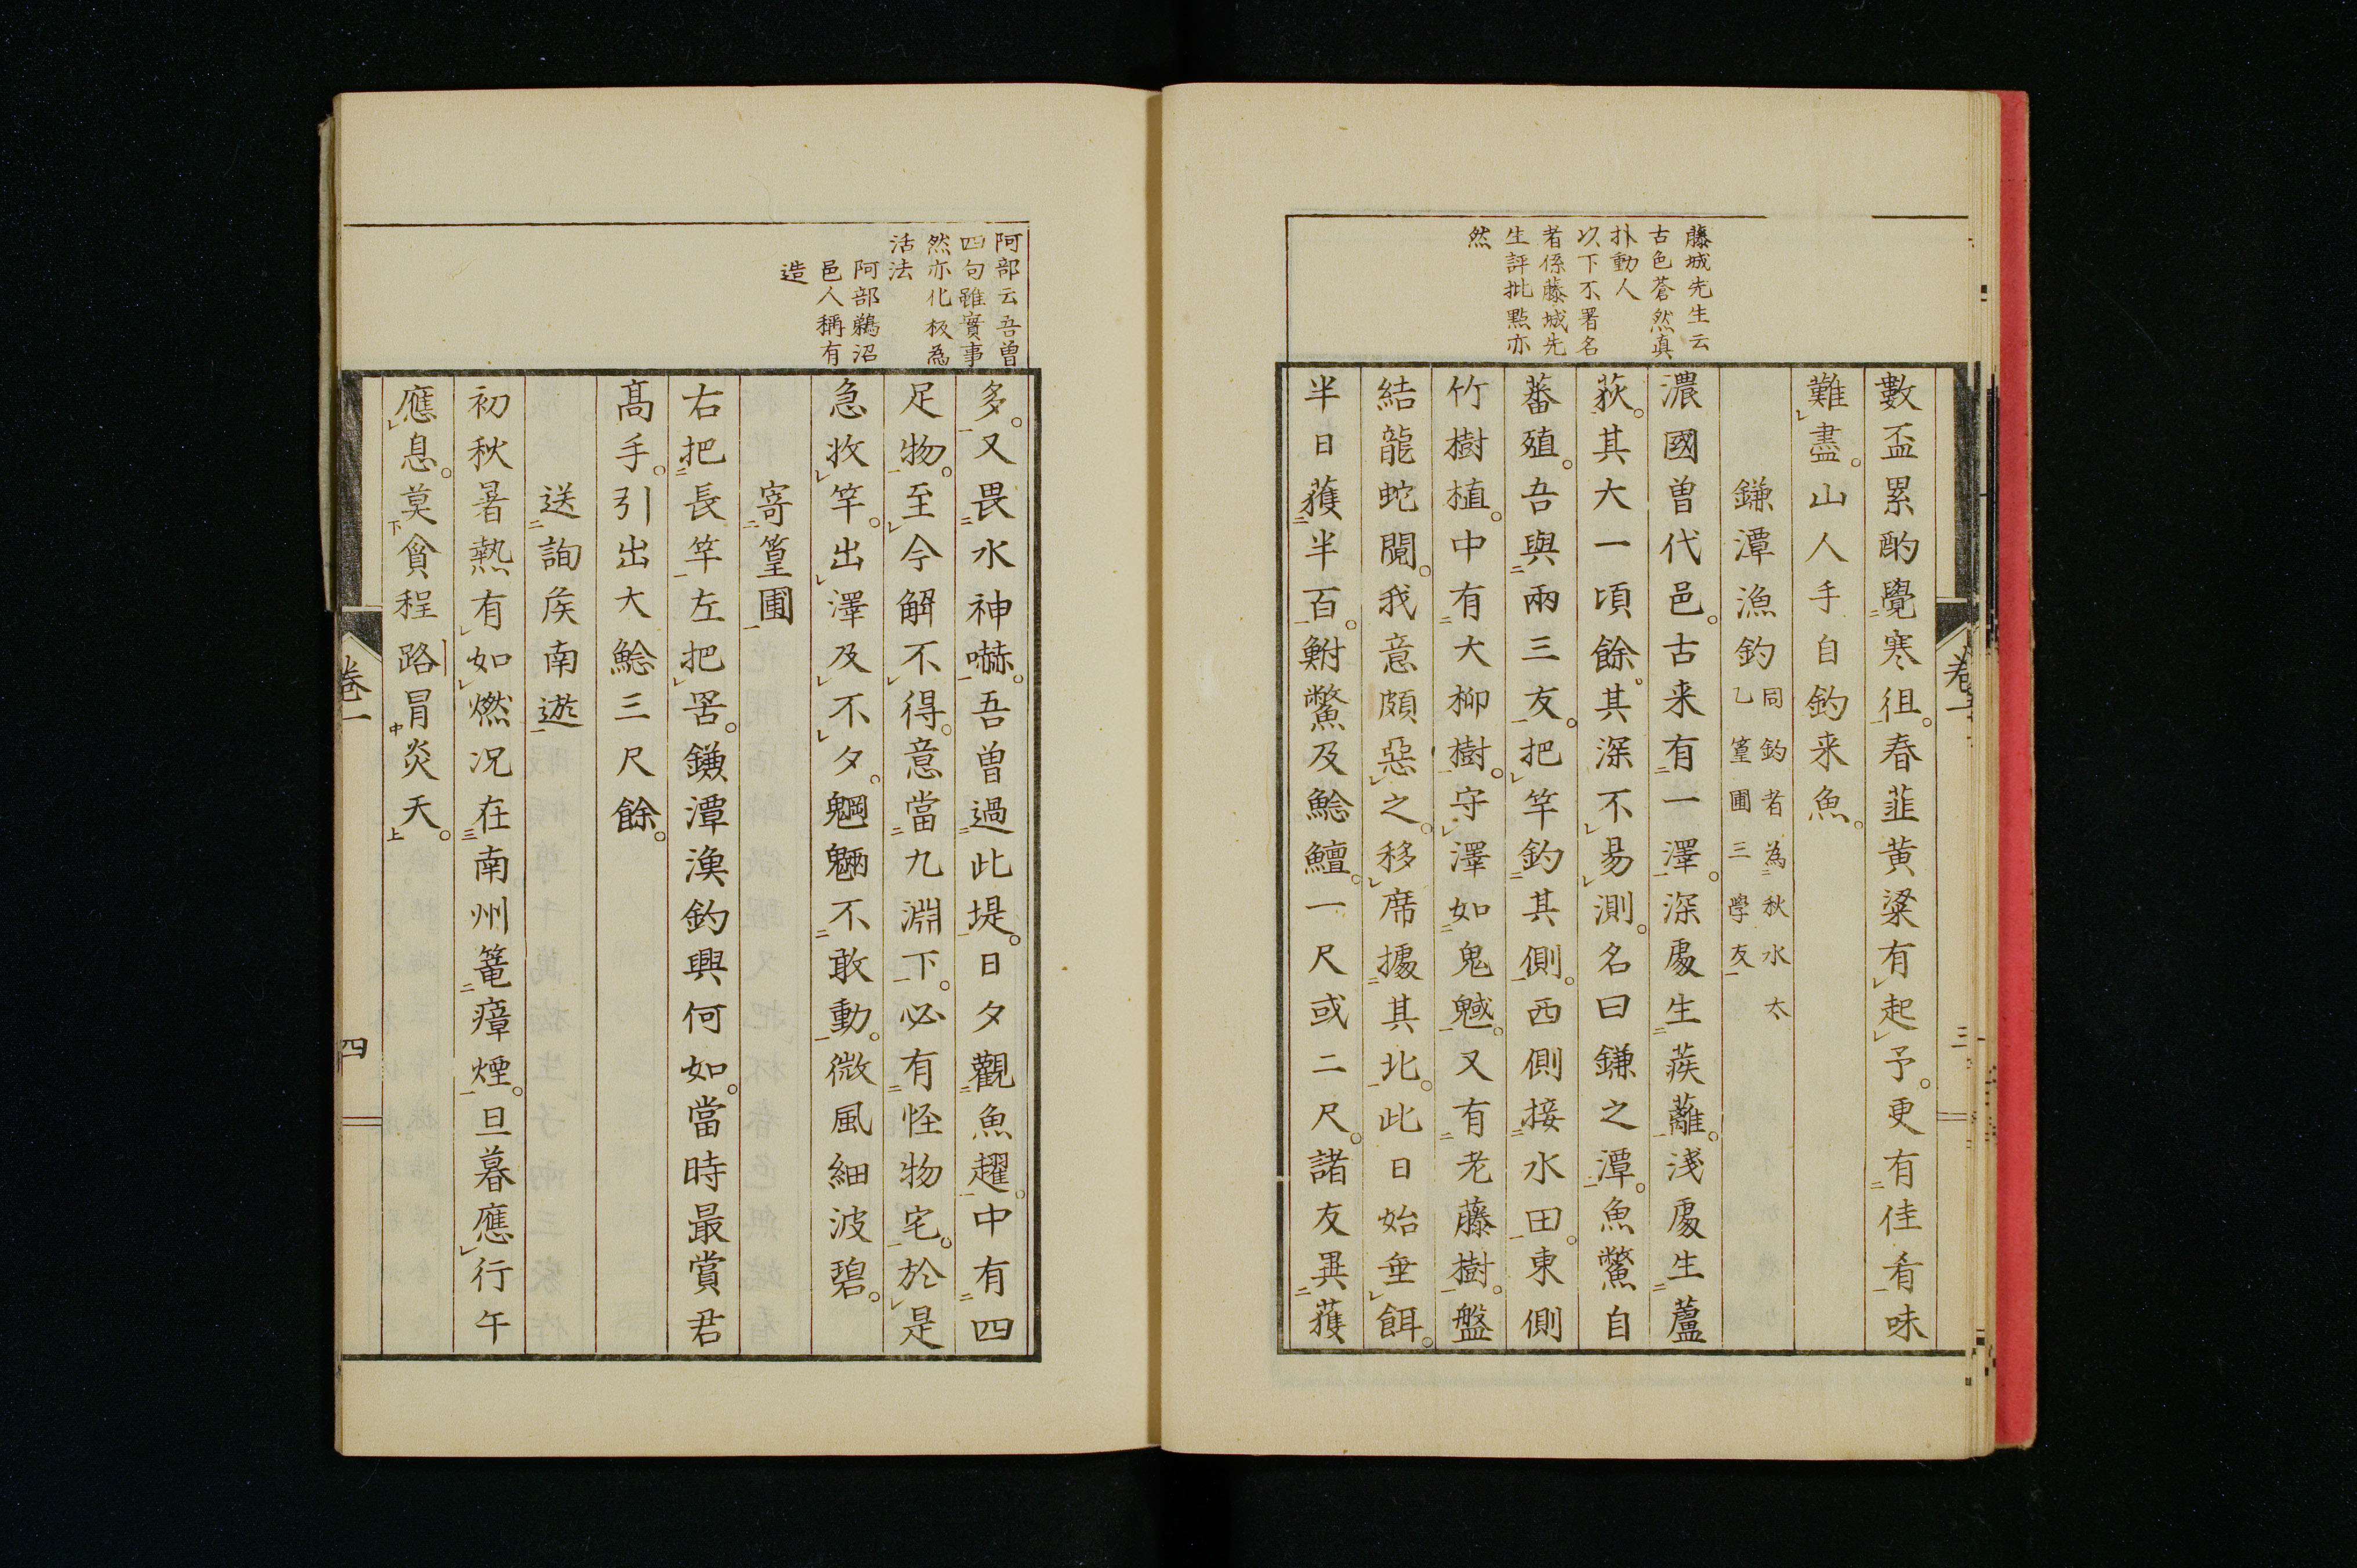 藤城先生云
古色蒼然真
扑動人
以下不署名
者係藤城先
生評批點亦
然
數盃累酌覺寒徂春韮黄粱有起予更有佳肴味
難盡山人手自釣来魚
鎌潭漁釣
同釣者為秋水太
乙篁圃三學友
濃國曽代邑古来有一澤深處生蒺蘺淺處生蘆
荻其大一頃餘其深不易測名曰鎌之潭魚鱉自
蕃殖吾與兩三友把竿釣其側西側接水田東側
竹樹植中有大柳樹守澤如鬼魊又有老藤樹盤
結龍蛇鬩我意頗惡之移席據其北此日始垂餌
半日獲半百鮒鱉及鯰鱣一尺或二尺諸友異獲
卷一
三
阿部云吾曽
四句雖實事
然亦化板為
活法
阿部鶸沼
邑人稱有
造
多又畏水神嚇吾曽過此堤日夕觀魚趯中有四
足物至今解不得意當九淵下必有怪物宅於是
急收竿出澤及不夕魍魎不敢動微風細波碧
寄篁圃
右把長竿左把罟鎌潭漁釣興何如當時最賞君
髙手引出大鯰三尺餘
送詢矦南遊
初秋暑熱有如燃况在南州篭瘴煙旦暮應行午
應息莫貪程路冒炎天
卷一
四